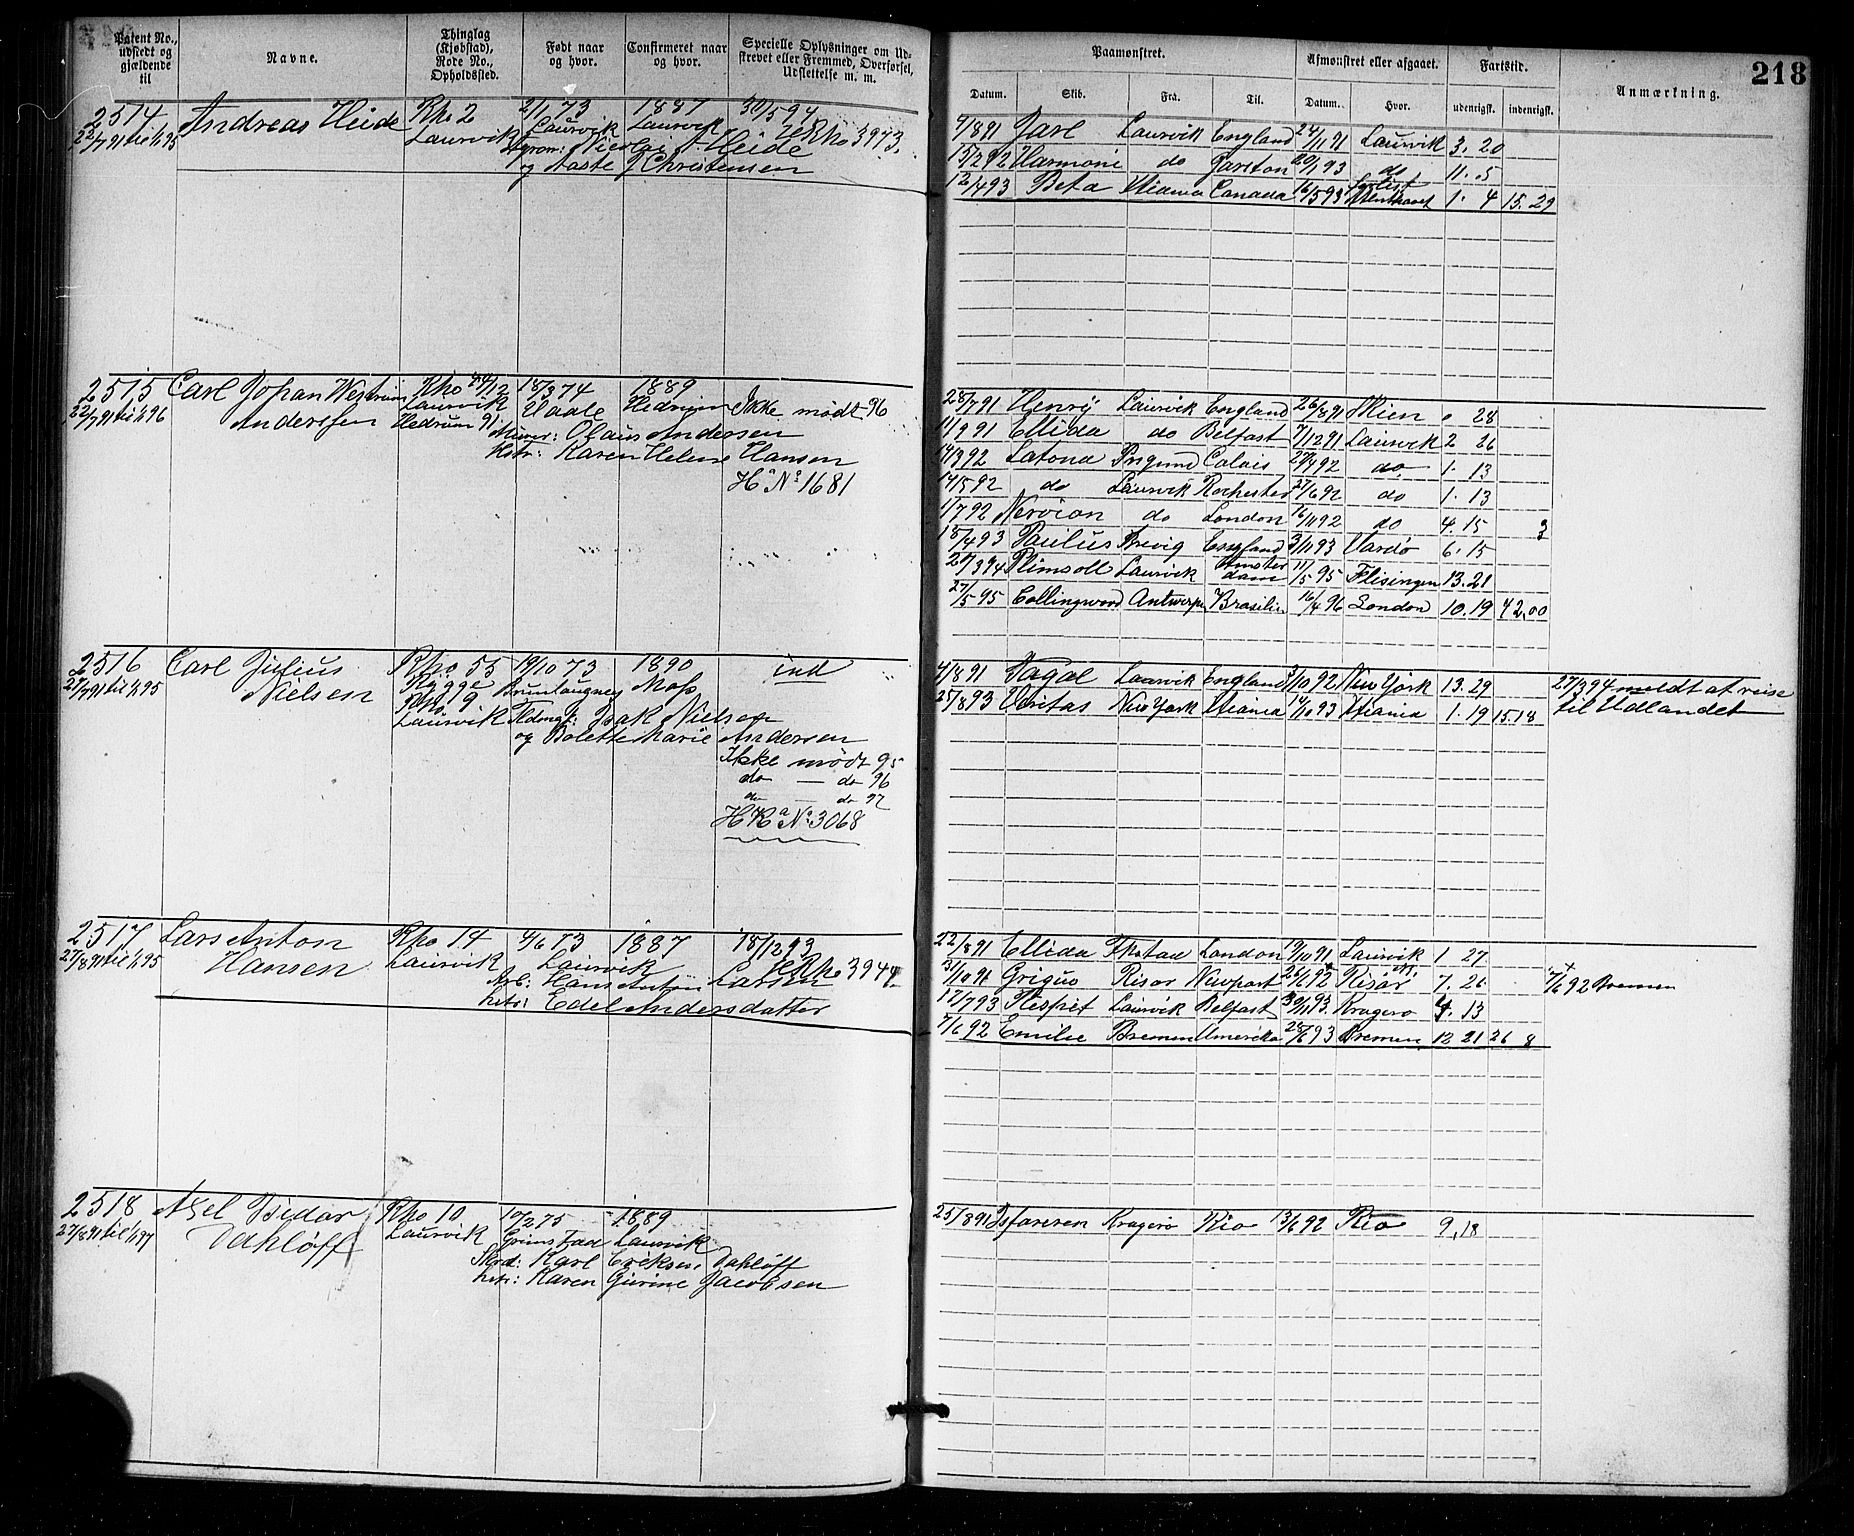 Patent No., udstedt og gjældende til
Navne.
Thinglag (Kjøbstad), Rode No., Opholdssted.
Født naar og hvor.
Confirmeret naar og hvor.
Specielle Oplysninger om Udskrevet eller Fremmed, Overførsel, Udslettelse m. m.
Paamønstret.
Afmønstret eller afgaaet.
Fartstid.
218
Datum. Skib. Fra. Til. Datum. Hvor. udenrigsk. indenrigsk. Anmærkning.
2514 Andreas Heide Rho 2 2/1 73 1887 30/5 94
22/7 91 til 1/1 95 Laurvik Laurvik Laurvik Rho 3973.
Nicolai Heide
og Aaste J Christensen
4/8 91 Jarl Laurvik England 24/11 91 Laurvik 3. 20
15/2 92 Harmonie do Garston 20/1 93 do 11. 5
12/4 93 Beta Canada 16/5 93 forlist 1. 4 15. 29
2515 Carl Johan Westrum Rho 18/3 74 1889 Ikke mødt 96
22/7 91 til 1/1 96 Anderssen Laurvik Hedrum
Hedrum 91 Olaus Andersen
Karen Helene Hansen
H a No 1681
28/7 91 Henry Laurvik England 26/8 91 Skien 0 28
11/9 91 Ellida do Belfast 7/12 91 Laurvik 2 26
14/3 92 Latona Calais 27/4 92 do 1. 13
14/5 92 do Laurvik Rochester 27/6 92 do 1. 13
1/7 92 Nervion do London 16/11 92 do 4. 15 3
18/4 93 Paulus Brevig England 3/11 93 Vardø 6. 15
20/3 94 Plimsoll Laurvik Amsterdam 11/5 95 Flisingen 13. 21
27/5 95 Collingwood Antwerpen Brasilien 16/4 96 London 10. 19 42,00
2516 Carl Julius Rho 55 19/10 73 1890 ind
21/7 91 til 1/1 95 Nielsen Rygge Brunlaugnes Moss
Rho 9
Laurvik Isak Nielsen
og Bolette Marie Andersen
Ikke mødt 95
do — do 96
do — do 97
H R a No 3068
4/8 91 Vagal Laurvik England 3/10 92 New York 13. 29 27/3 94 meldt at reise
25/8 93 Veritas New York 14/10 93 1. 19 15.18 til Udlandet
2517 Lars Anton Rho 14 4/6 73 1887 18/12 93
27/8 91 til 1/1 95 Hansen Laurvik Laurvik Rho 3944.
Arb: Hans Anton Larsen
hstr: Edel Andersdatter
22/8 91 Ellida London 19/10 91 Laurvik 1 27
31/10 91 Griquo Risør Newport Risør 7. 26 7/6 92 Bremen
17/7 93 Respiet Laurvik Belfast 30/11 93. Kragerø 4. 13
7/6 92 Emilie Bremen Amerika 28/6 93 Bremen 12 21 26 8
2518 Axel Vidar Rho 10 10/2 75 1889
27/8 91 til 1/1 97 Dahløff Laurvik Grimstad Laurvik
Skrd: Karl Eriksen Dahløff
hstr: Karen Gurine Jacobsen
25/8 91 Isfareren Kragerø Rio 13/6 92 Rio 9, 18